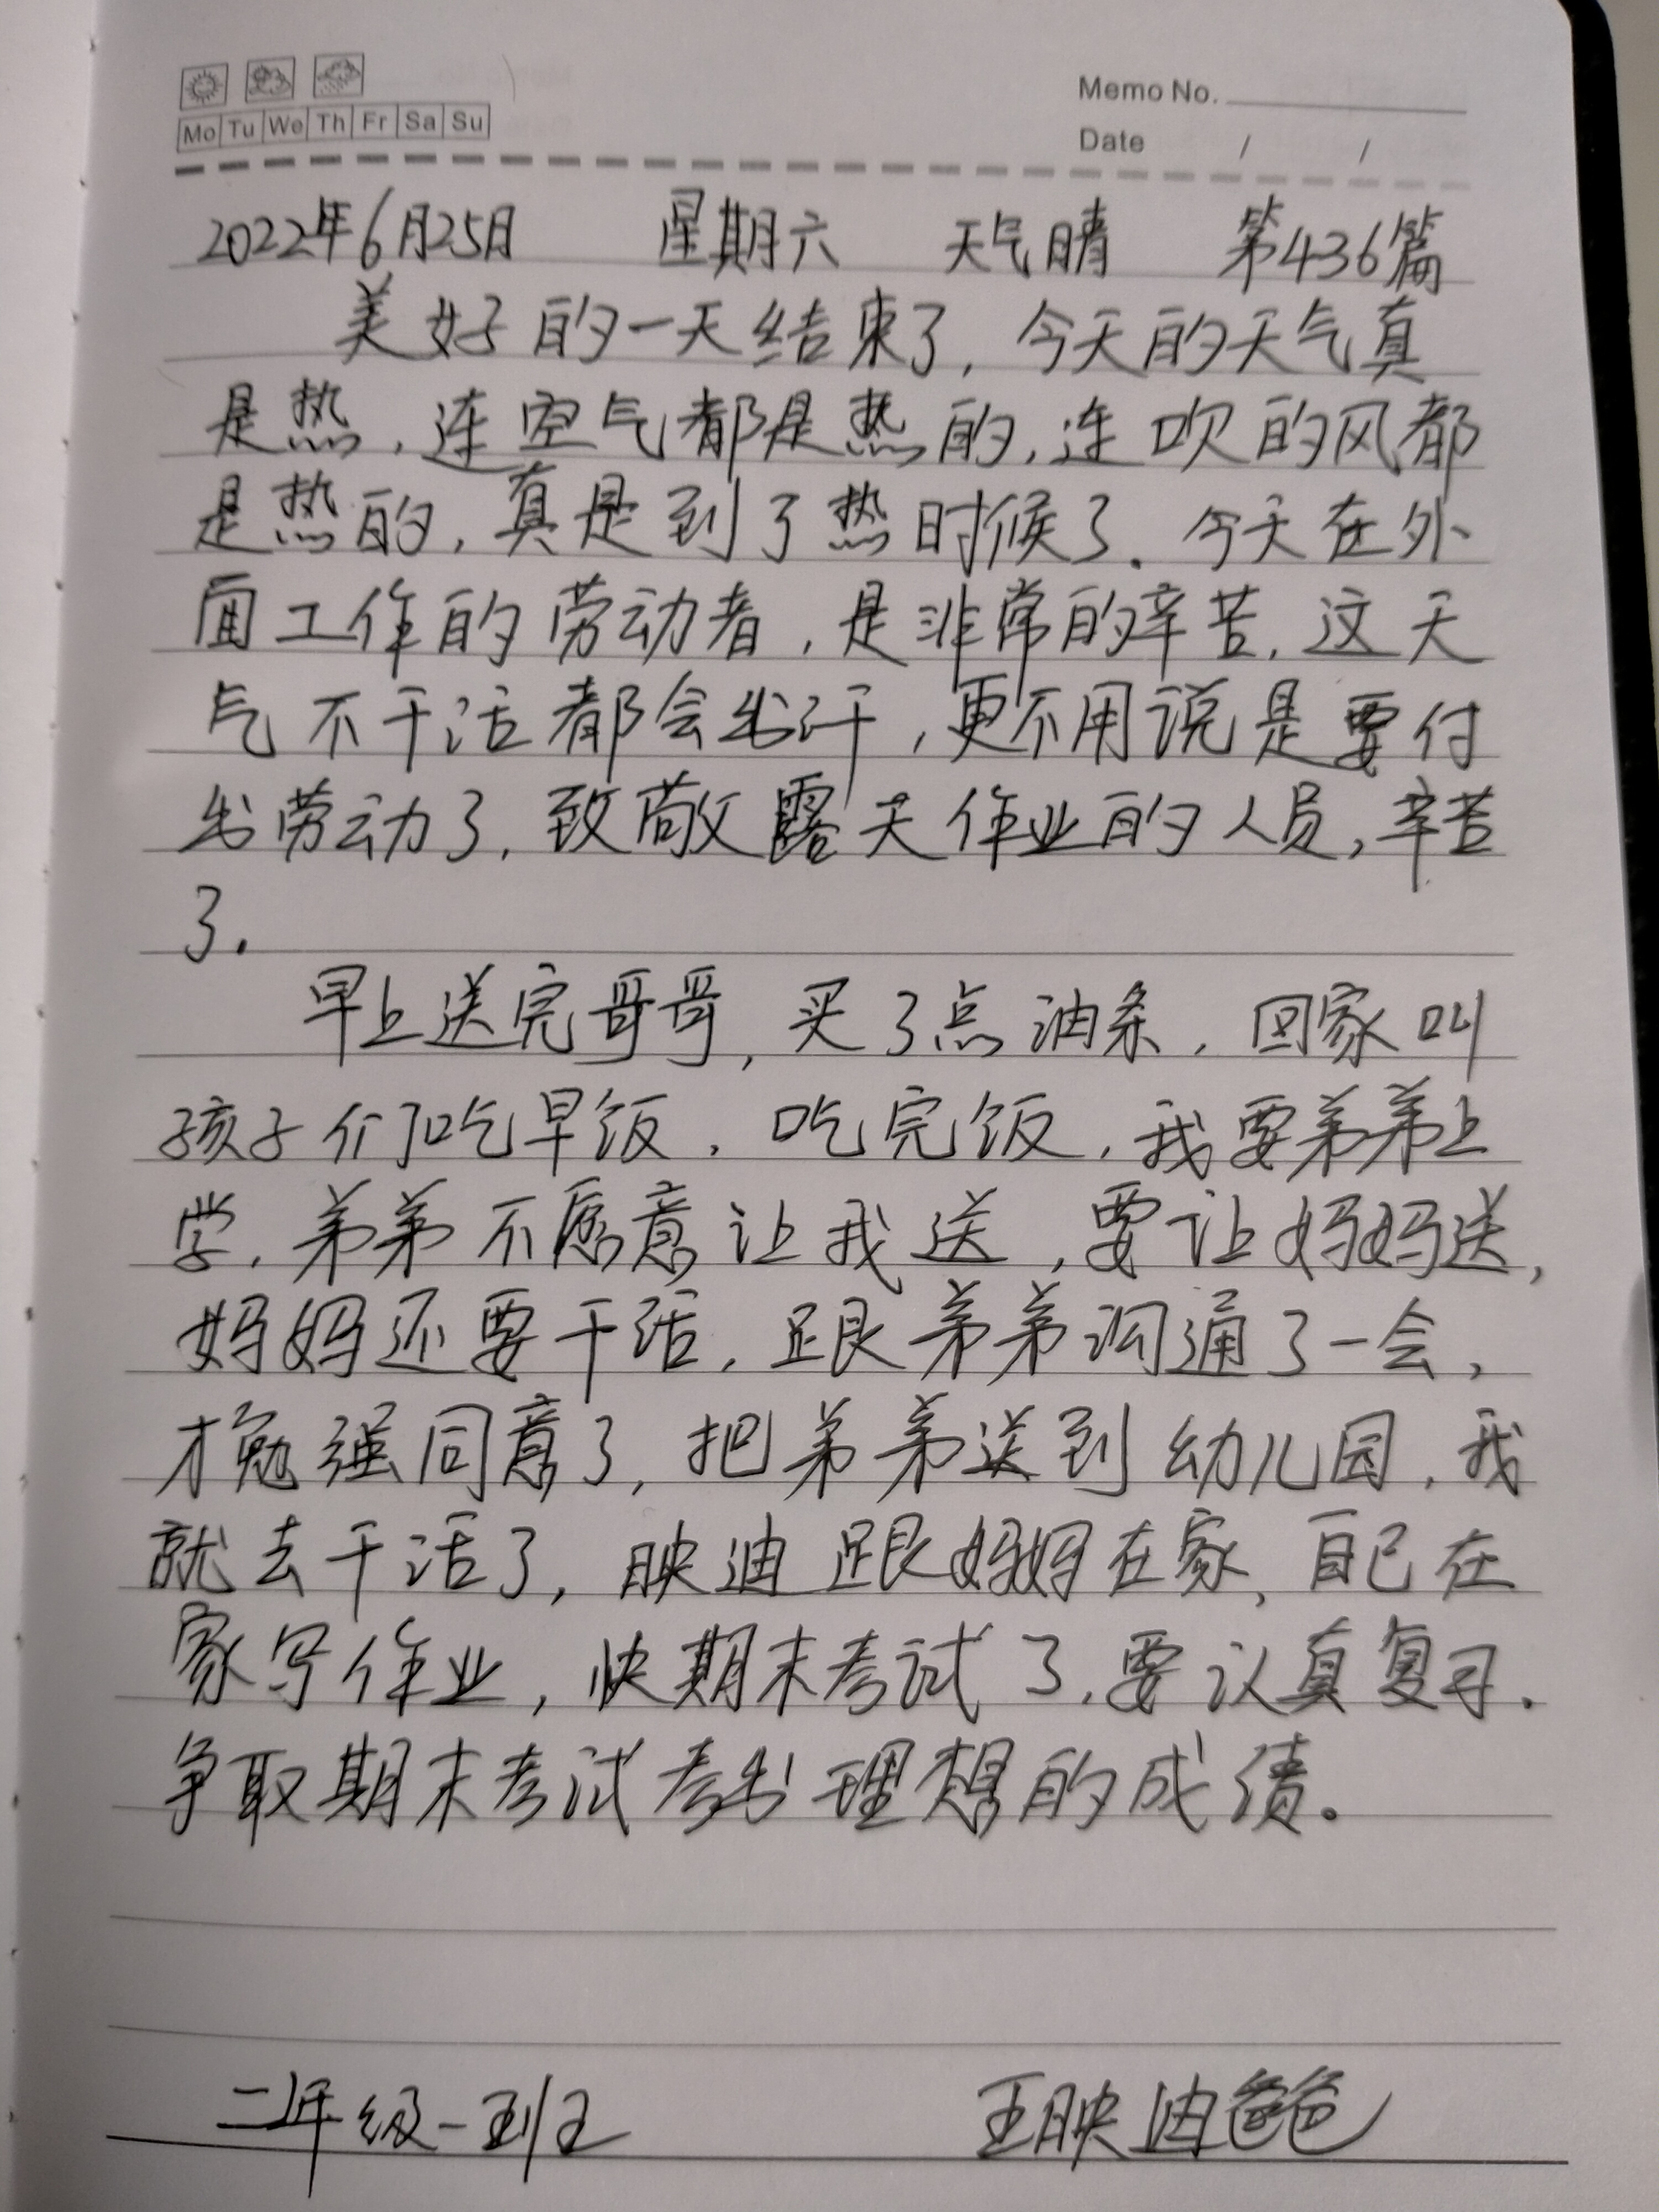 Mo Tu We Th Fr Sa Su
Memo No.
Date / /
2022年6月25日 星期六 天气晴 第436篇
美好的一天结束了,今天的天气真
是热,连空气都是热的,连吹的风都
是热的,真是到了热时候了.今天在外
面工作的劳动者,是非常的辛苦,这天
气不干活都会出汗,更不用说是要付
出劳动了,致敬露天作业的人员,辛苦
了.
早上送完哥哥,买了点油条,回家叫
孩子们吃早饭,吃完饭,我要弟弟上
学,弟弟不愿意让我送,要让妈妈送,
妈妈还要干活,跟弟弟沟通了一会,
才勉强同意了,把弟弟送到幼儿园,我
就去干活了,映迪跟妈妈在家,自己在
家写作业,快期末考试了,要认真复习.
争取期末考试考出理想的成绩。
二年级一班 王映迪爸爸